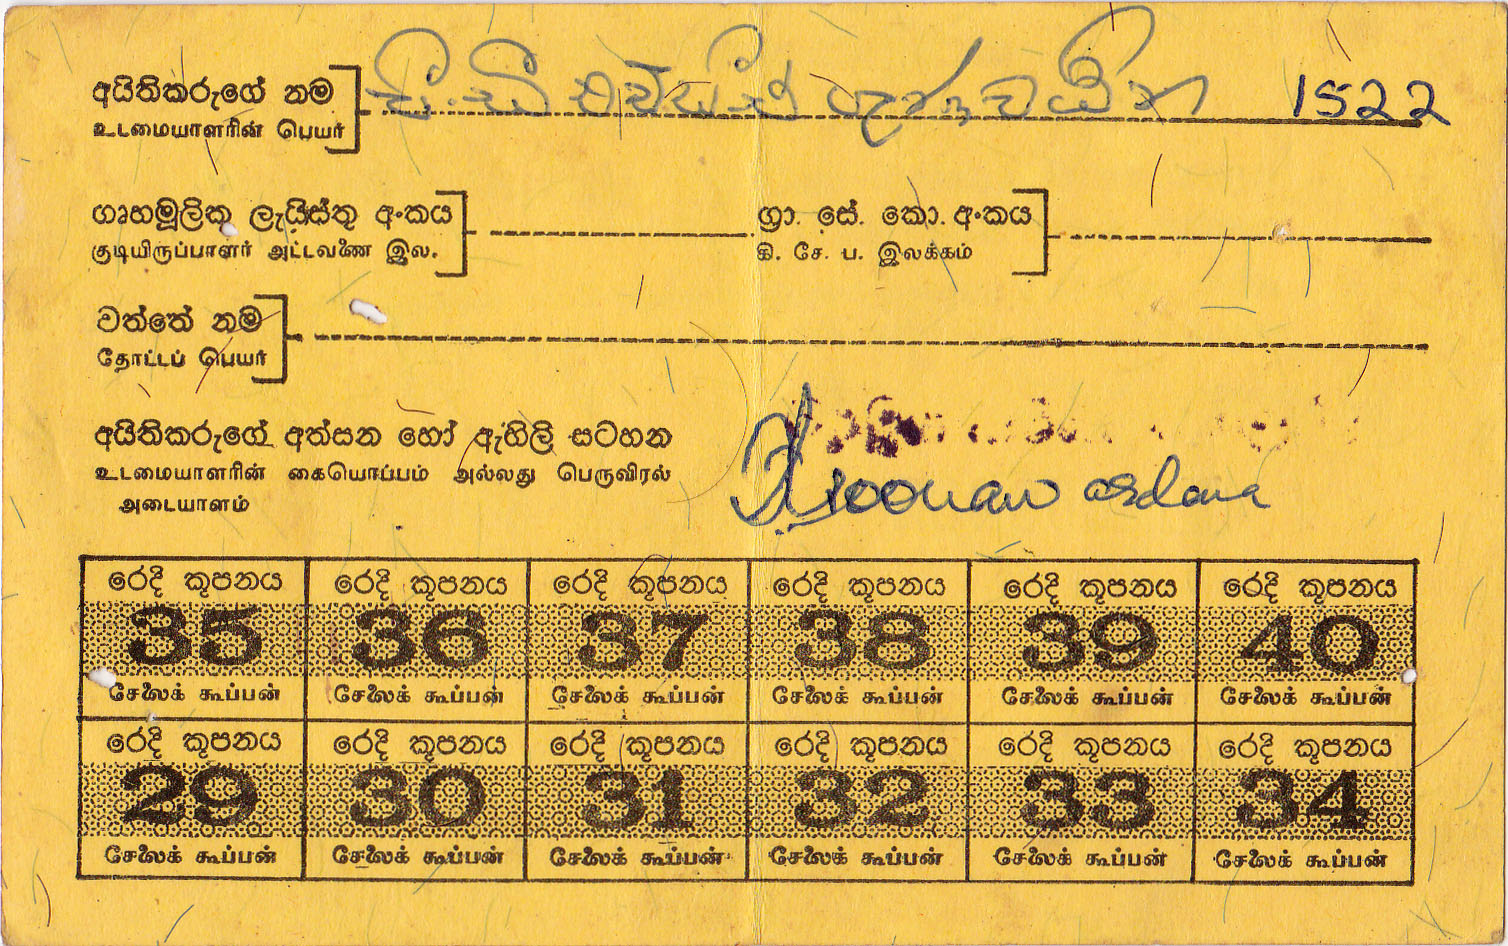 අයිතිකරුගේ නම 1522
உடமையாளரின் பெயர்
ගෘහමූලික ලැයිස්තු අංකය ග්‍රා. සේ. කො. අංකය
குடியிருப்பாளர் அட்டவணை இல. கி. சே. ப. இலக்கம்
වත්තේ නම
தோட்டப் பெயர்
අයිතිකරුගේ අත්සන හෝ ඇඟිලි සටහන
உடமையாளரின் கையொப்பம் அல்லது பெருவிரல்
அடையாளம்
රෙදි කූපනය රෙදි කූපනය රෙදි කූපනය රෙදි කූපනය රෙදි කූපනය රෙදි කූපනය
35 36 37 38 39 40
சேலைக் கூப்பன் சேலைக் கூப்பன் சேலைக் கூப்பன் சேலைக் கூப்பன் சேலைக் கூப்பன் சேலைக் கூப்பன்
රෙදි කූපනය රෙදි කූපනය රෙදි කූපනය රෙදි කූපනය රෙදි කූපනය රෙදි කූපනය
29 30 31 32 33 34
சேலைக் கூப்பன் சேலைக் கூப்பன் சேலைக் கூப்பன் சேலைக் கூப்பன் சேலைக் கூப்பன் சேலைக் கூப்பன்